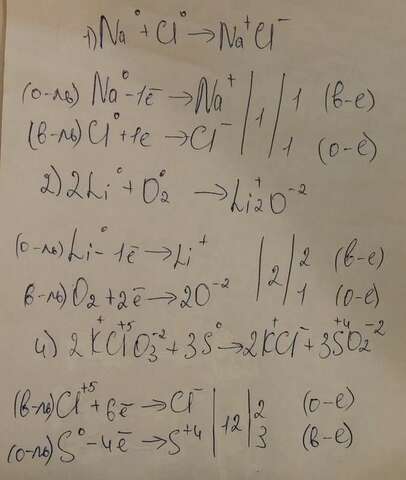 1) Na⁰ + Cl⁰ → Na⁺Cl⁻
(о-ль) Na⁰ - 1ē → Na⁺ | 1 | 1 (в-е)
(в-ль) Cl⁰ + 1e → Cl⁻ | 1 (о-е)
2) 2Li⁰ + O₂⁰ → Li₂⁺O⁻²
(о-ль) Li⁰ - 1ē → Li⁺ | 2 | 2 (в-е)
в-ль) O₂ + 2ē → 2O⁻² | 1 (о-е)
4) 2K⁺Cl⁺⁵O₃⁻² + 3S⁰ → 2K⁺Cl⁻ + 3S⁺⁴O₂⁻²
(в-ль) Cl⁺⁵ + 6ē → Cl⁻ | 12 | 2 (о-е)
(о-ль) S⁰ - 4ē → S⁺⁴ | 3 (в-е)